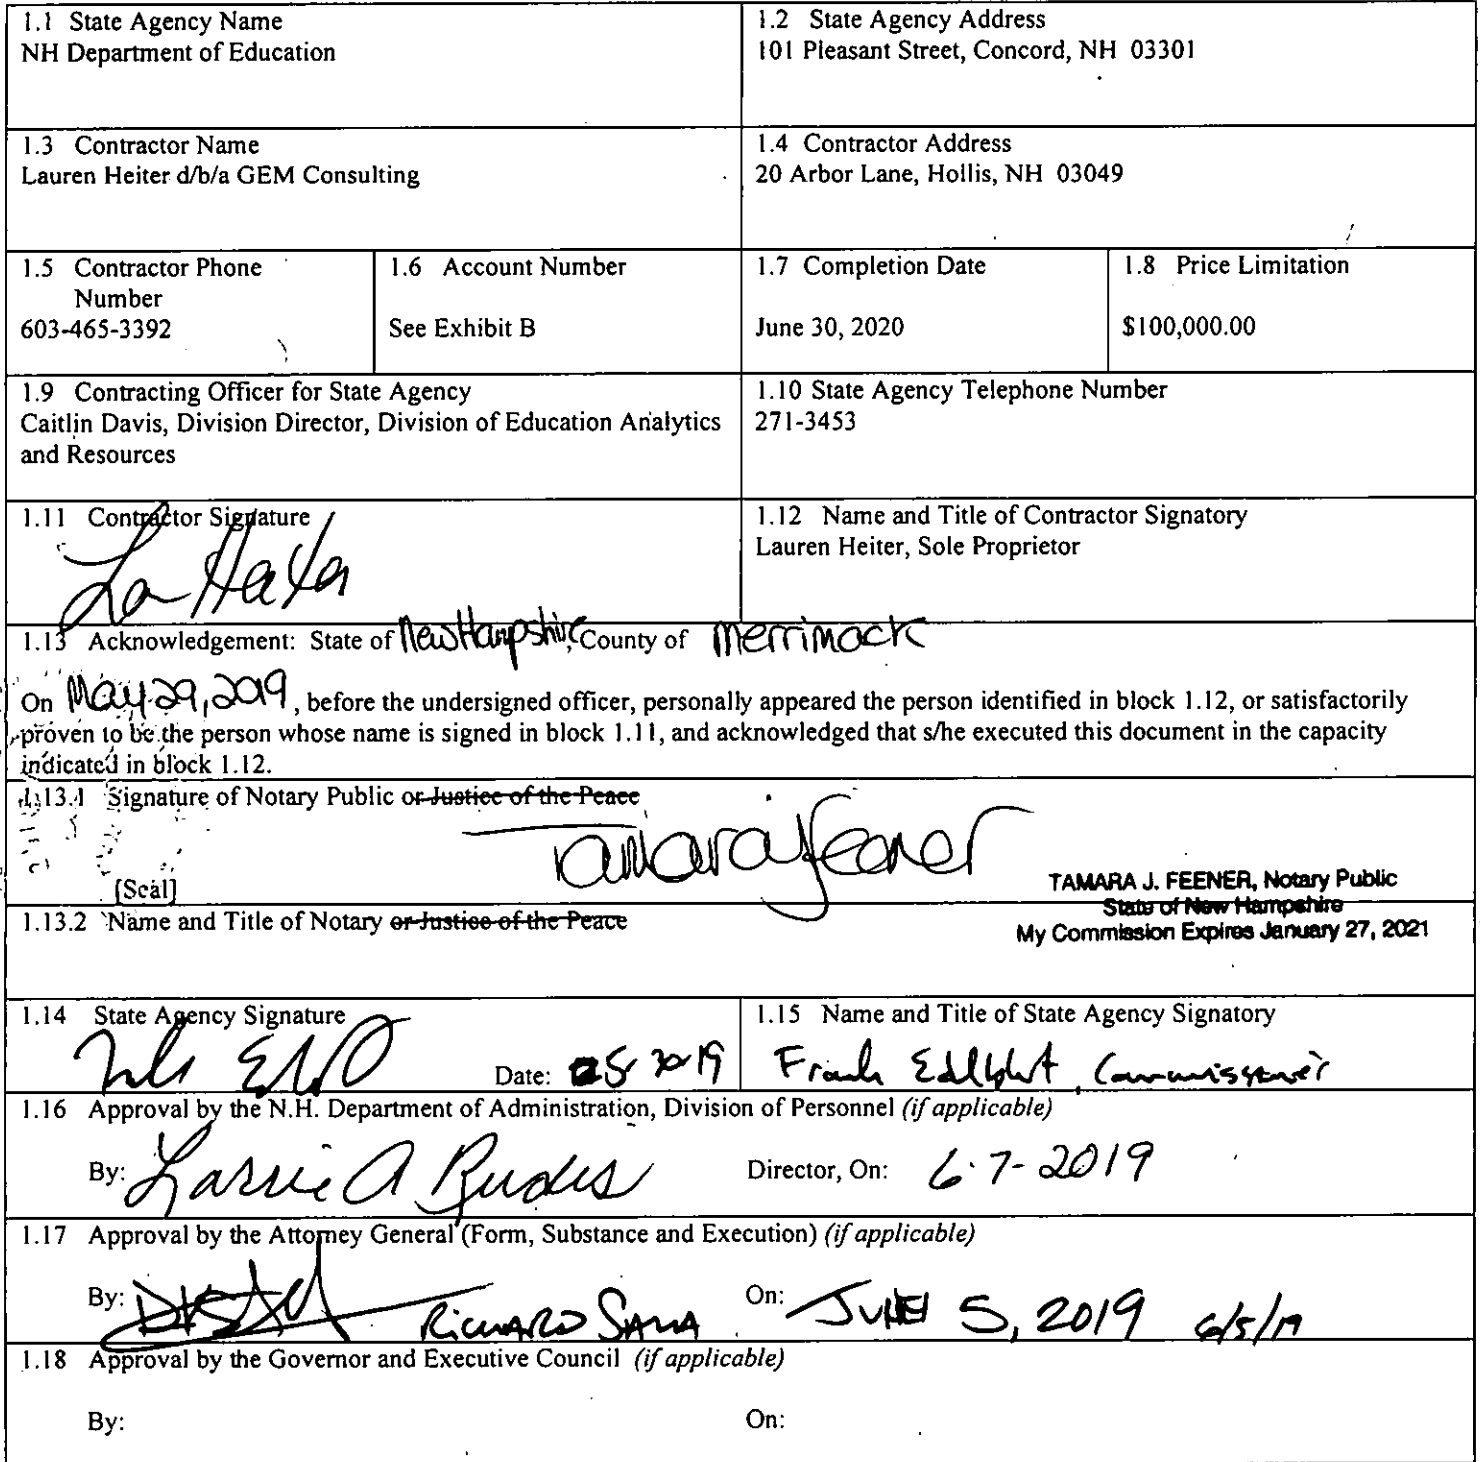 1.1 State Agency Name
NH Department of Education
1.2 State Agency Address
101 Pleasant Street, Concord, NH 03301
1.3 Contractor Name
Lauren Heiter d/b/a GEM Consulting
1.4 Contractor Address
20 Arbor Lane, Hollis, NH 03049
1.5 Contractor Phone
Number
603-465-3392
1.6 Account Number
See Exhibit B
1.7 Completion Date
June 30, 2020
1.8 Price Limitation
$100,000.00
1.9 Contracting Officer for State Agency
Caitlin Davis, Division Director, Division of Education Analytics
and Resources
1.10 State Agency Telephone Number
271-3453
1.11 Contractor Signature
1.12 Name and Title of Contractor Signatory
Lauren Heiter, Sole Proprietor
1.13 Acknowledgement: State of New Hampshire, County of Merrimack
On May 29, 2019, before the undersigned officer, personally appeared the person identified in block 1.12, or satisfactorily
proven to be the person whose name is signed in block 1.11, and acknowledged that s/he executed this document in the capacity
indicated in block 1.12.
1.13.1 Signature of Notary Public or Justice of the Peace
Tamara J Feener
[Seal]
TAMARA J. FEENER, Notary Public
State of New Hampshire
My Commission Expires January 27, 2021
1.13.2 Name and Title of Notary or Justice of the Peace
1.14 State Agency Signature
Date: 2019
1.15 Name and Title of State Agency Signatory
Frank Edelblut, Commissioner
1.16 Approval by the N.H. Department of Administration, Division of Personnel (if applicable)
By: Lorrie A Rudis
Director, On: 6-7-2019
1.17 Approval by the Attorney General (Form, Substance and Execution) (if applicable)
By: RICHARD SALA
On: JUNE 5, 2019 6/5/19
1.18 Approval by the Governor and Executive Council (if applicable)
By:
On: